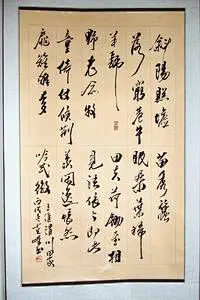 斜陽照墟
落窮巷牛
羊歸
野老念牧
童倚杖候荊
扉雉雊麥
苗秀蠶
眠桑葉稀
田夫荷鋤至相
見語依依即此
羨閒逸悵然
吟式微
王維渭川田家